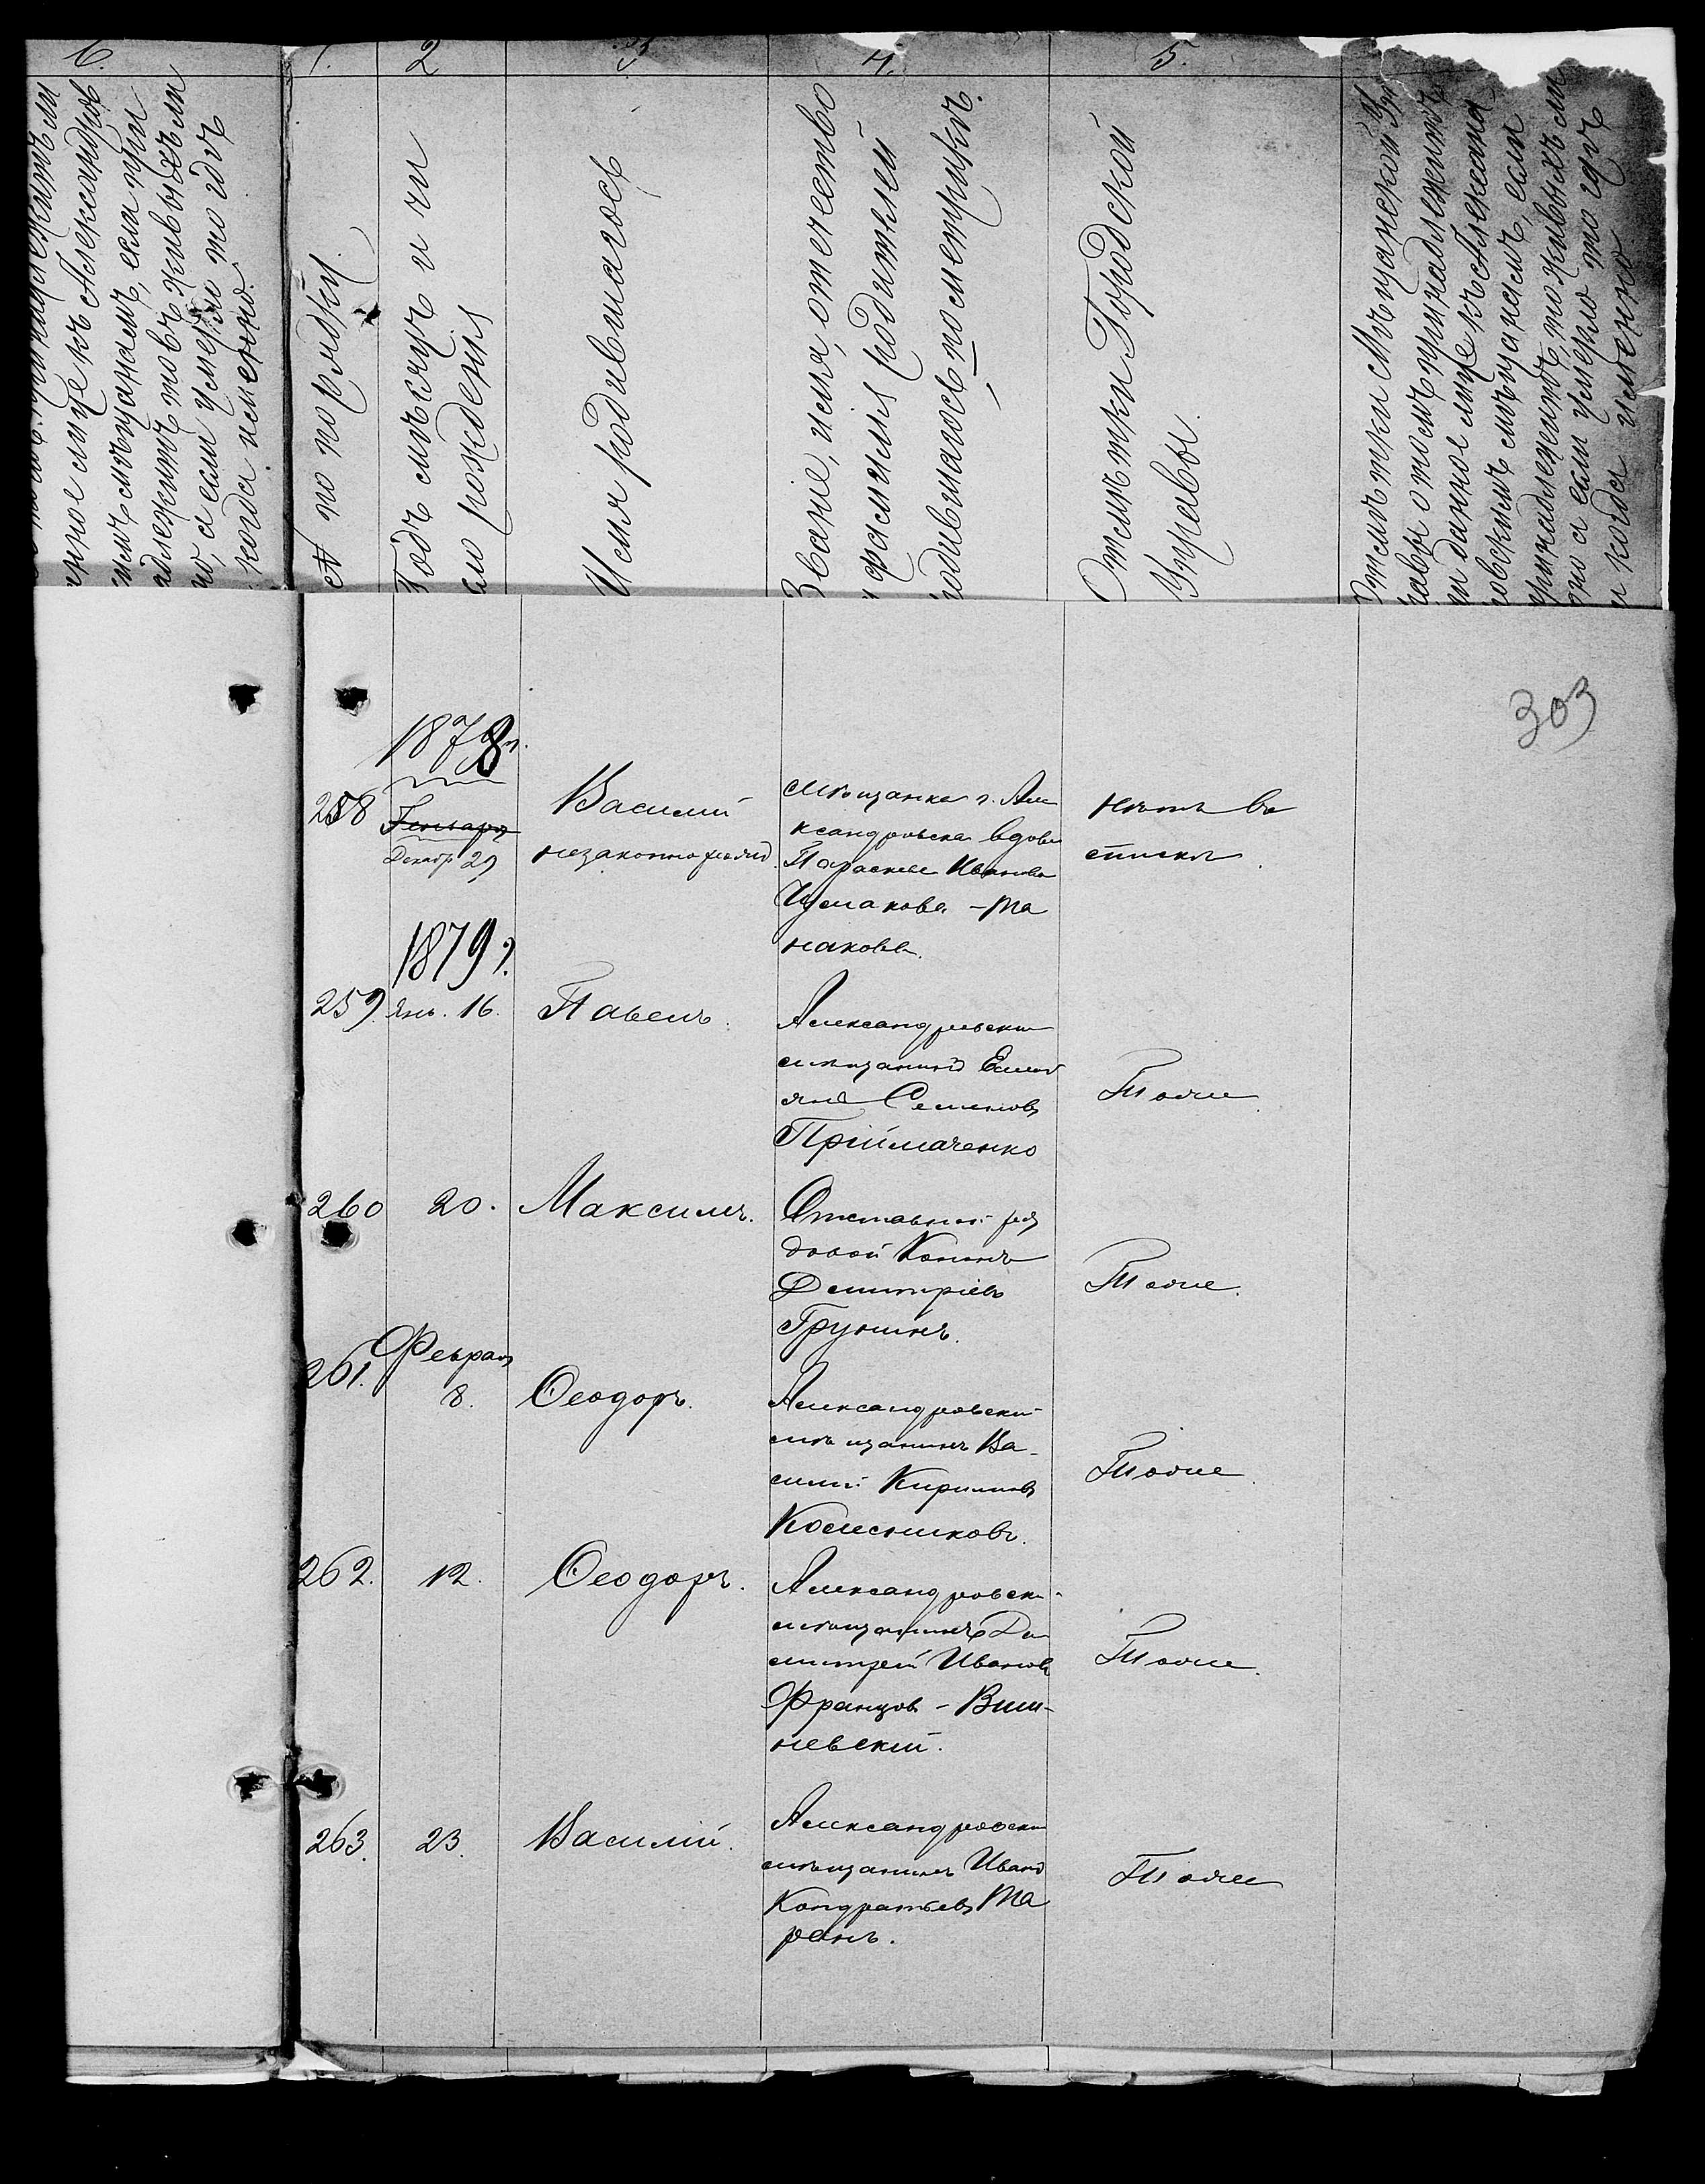 6.
нное лице къ Александров
имъ мѣщанамъ, если при
адлежитъ то въ живыхъ ли
но, а если умерло то гдѣ
когда именно.
1.
2
3.
4.
5.
№ по порядку
Годъ мѣсяцъ и чи
сло рожденія
Имя родившагося
Званіе, имя, отчество
и фамилія родителей
родившагося по метрикѣ.
Отмѣтки Городской
Управы.
Отмѣтки Мѣщанской Уп
равы о томъ принадлежитъ
ли данное лице къ Алексан
ровскимъ мѣщанамъ, если
принадлежитъ, то живыхъ ли
оно а если умерло то гдѣ
и когда именно
303
1878 г.
258
Января
Декабр 29
Василій
незаконнорожд.
мѣщанка г. Але
ксандровска вдова
Параскева Иванова
Чумакова - Та
накова.
нѣтъ въ
спискѣ.
1879 г.
259. Янв. 16.
Павелъ.
Александровски
мѣщанинъ Емел
янъ Семеновъ
Пріймаченко
Тоже
260
20.
Максимъ.
Отставной ря
довой Кононъ
Дмитріевъ
Грунинъ.
Тоже.
261.
Феврал
8.
Ѳеодоръ.
Александровскій
мѣщанинъ Ва-
силій Кириловъ
Колесниковъ.
Тоже.
262.
12.
Ѳеодоръ.
Александровскій
мѣщанинъ Ди
митрій Ивановъ
Францов - Виш-
невскій.
Тоже.
263.
23.
Василій.
Александровски
мѣщанинъ Иванъ
Кондратьевъ Та
ранъ.
Тоже